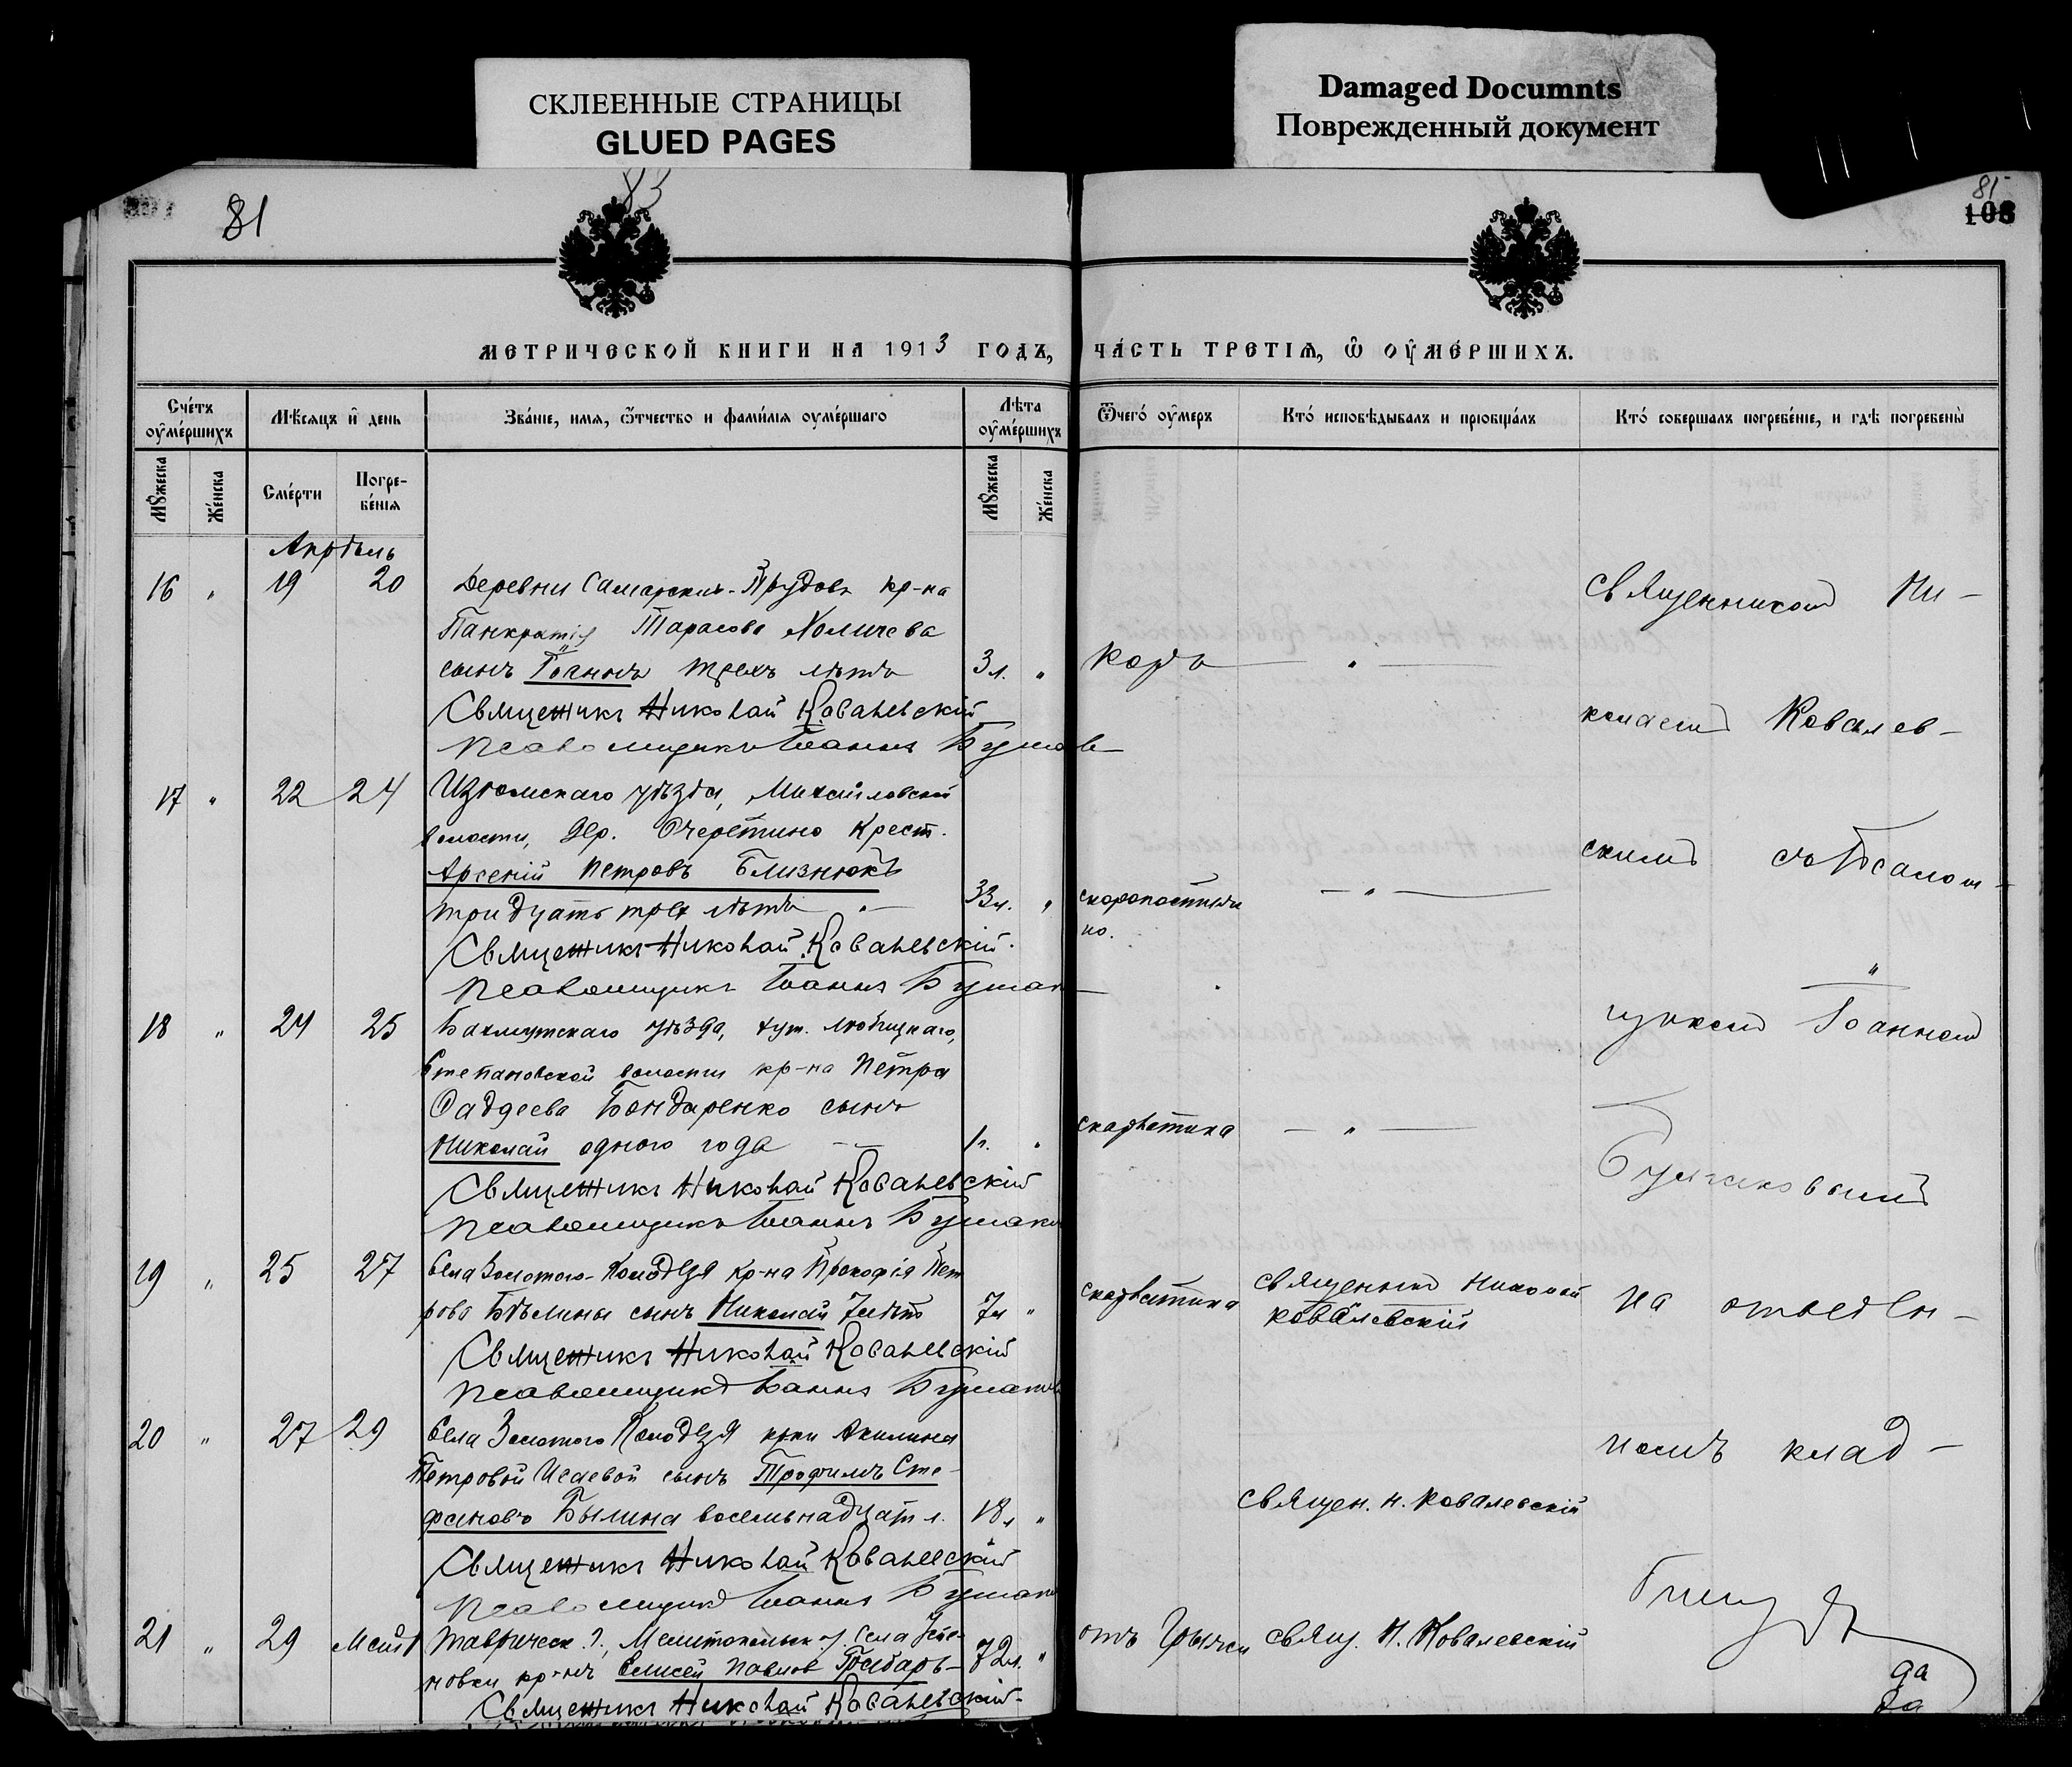 СКЛЕЕННЫЕ СТРАНИЦЫ
GLUED PAGES
Damaged Documnts
Поврежденный документ
81
83
81
108
МЕТРИЧЕСКОЙ КНИГИ НА 1913 ГОДЪ,
ЧАСТЬ ТРЕТІЯ, Ѡ ОУМЕРШИХЪ.
Счетъ оумершихъ
Мѣсяцъ и день
Званіе, имя, ѿтчество и фамилія оумершаго
Лѣта оумершихъ
Ѿчего оумеръ
Кто исповѣдывалъ и пріобщалъ
Кто совершалъ погребеніе, и гдѣ погребены
Мужеска
Женска
Смерти
Погребенія
Мужеска
Женска
Апрѣль
16 " 19 20 Деревни Самарскихъ-Прудовъ кр-на
Панкратія Тарасова
сынъ Іоаннъ трехъ лѣтъ 3л. " Корь — " —
Священникъ Николай Ковалевскій
Псаломщикъ Іоаннъ
17 " 22 24 Изюмскаго уѣзда, Михайловской
волости, дер. Очеретино Крест.
Арсеній Петровъ Близнюкъ
тридцать трех лѣтъ — 33л. " — " —
Священникъ Николай Ковалевскій.
Псаломщикъ Іоаннъ
18 " 24 25 Бахмутскаго уѣзда, хут.
Степановской волости кр-на Петра
Фаддеева Бондаренко сынъ
Николай одного года — 1г. " скарлатина — " —
Священникъ Николай Ковалевскій
Псаломщикъ Іоаннъ
19 " 25 27 Села Золотого-Колодезя кр-на Прокофія Пет
рова Бѣлины сынъ Николай 7 лѣтъ 7л " скарлатина Священникъ Николай
Ковалевскій
Священникъ Николай Ковалевскій
Псаломщикъ Іоаннъ
20 " 27 29 Села Золотого Колодезя кр-ки Акилины
Петровой Исаевой сынъ Трофимъ Сте-
фановъ Былина восемьнадцат л. 18л " Священ. Н. Ковалевскій
Священникъ Николай Ковалевскій
Псаломщикъ Іоаннъ
21 " 29 Мая 1 Таврическ. г. Мелитопольск. у. села
новки кр-нъ Елисей Павлов 72л. " отъ грыжи Свящ. Н. Ковалевскій
Священникъ Николай Ковалевскій
Священникомъ Ни-
колаемъ Ковалев-
скимъ съ Псалом-
щикомъ Іоанномъ
на отведен-
номъ клад-